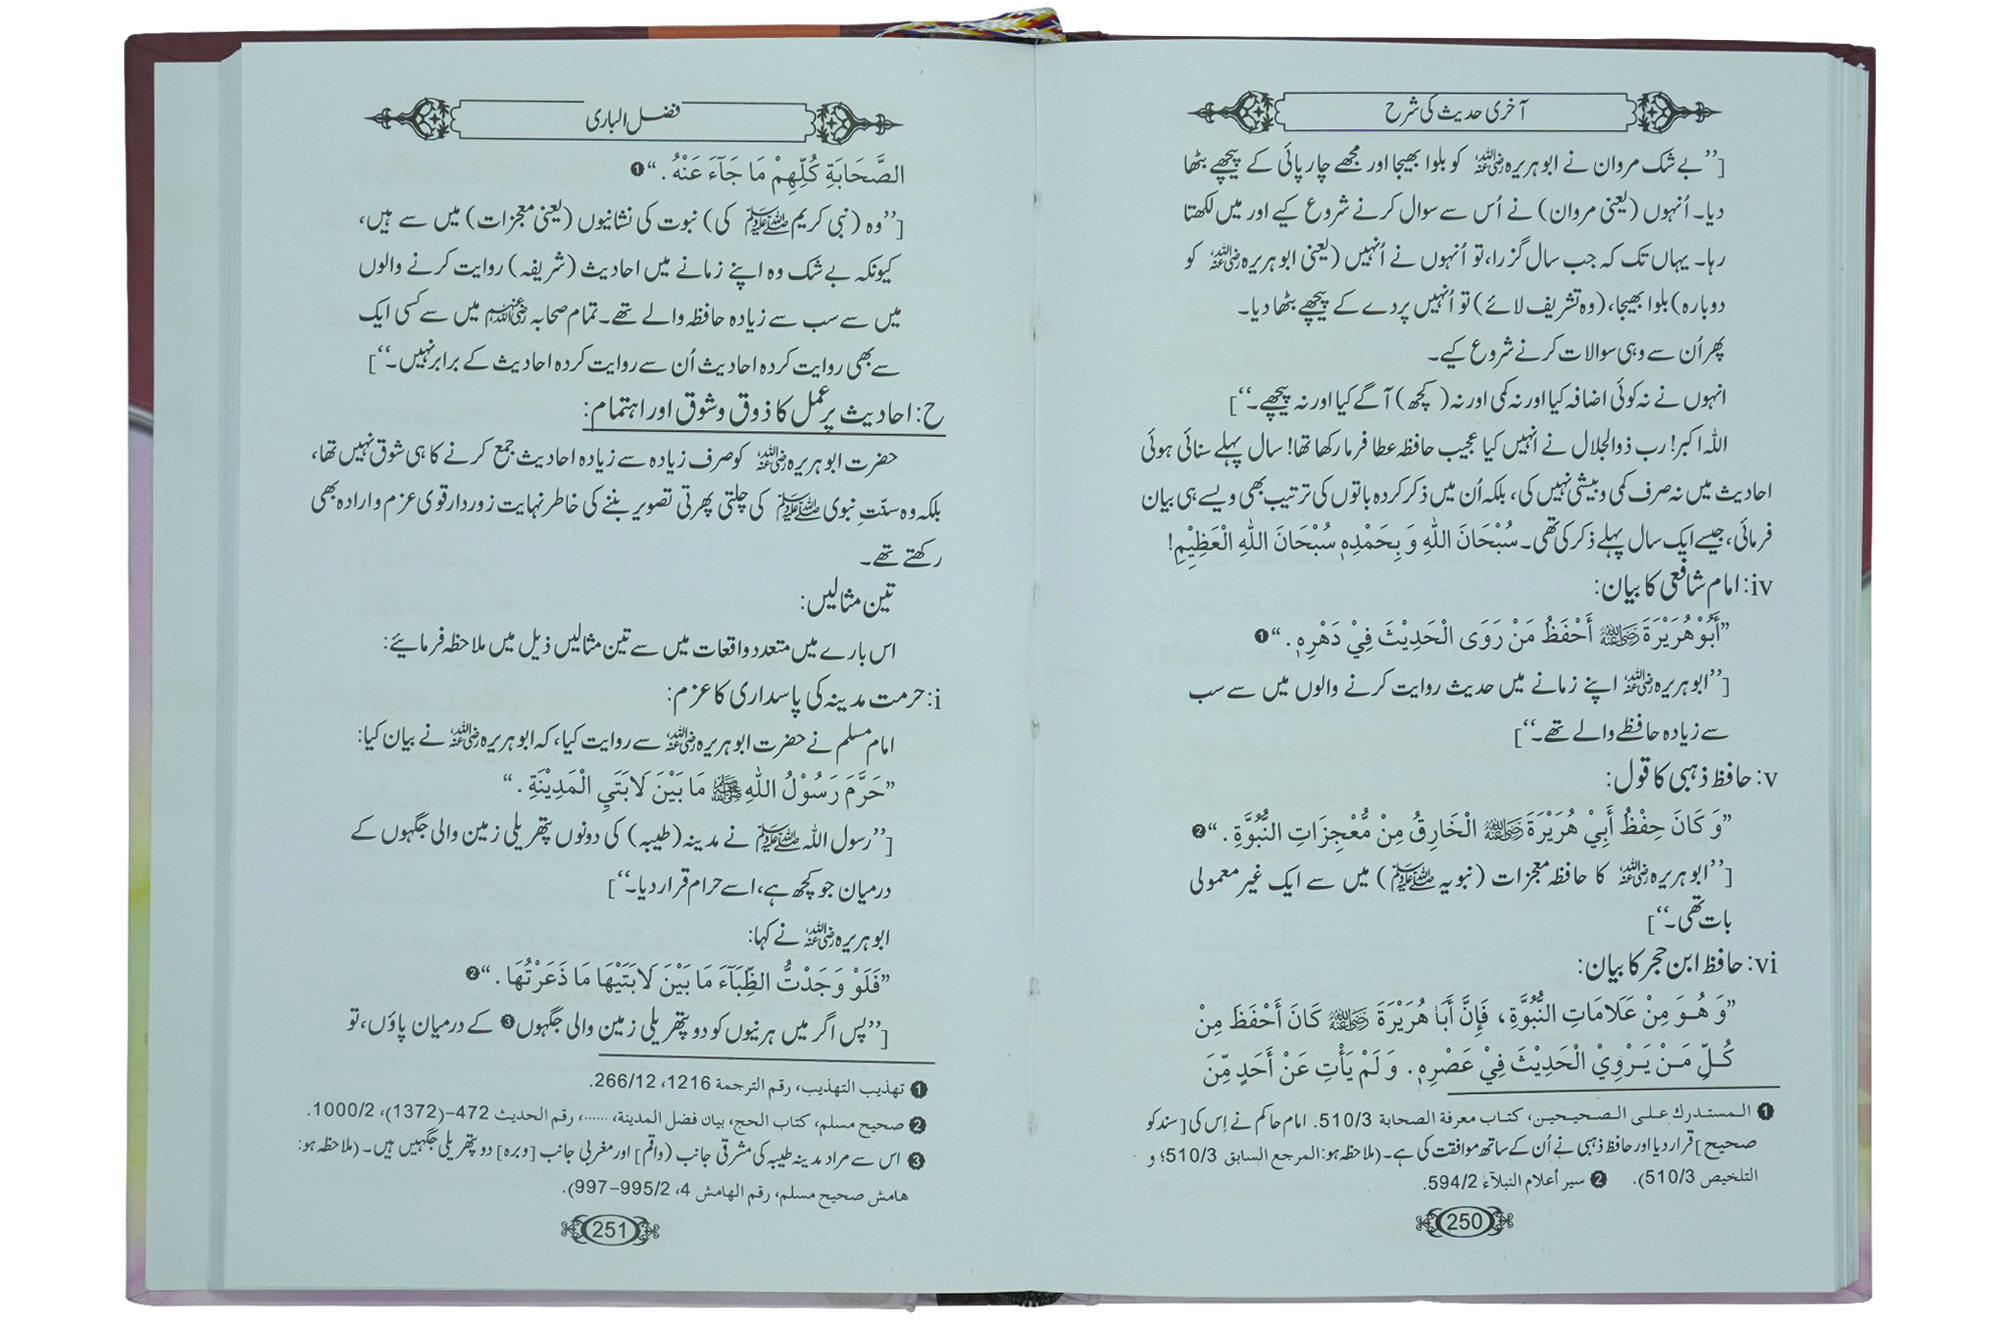 آخری حدیث کی شرح
[’’بے شک مروان نے ابو ہریرہ رضی اللہ عنہ کو بلوا بھیجا اور مجھے چارپائی کے پیچھے بٹھا
دیا۔ اُنہوں (یعنی مروان) نے اُس سے سوال کرنے شروع کیے اور میں لکھتا
رہا۔ یہاں تک کہ جب سال گزرا، تو اُنہوں نے اُنہیں (یعنی ابو ہریرہ رضی اللہ عنہ کو
دوبارہ) بلوا بھیجا، (وہ تشریف لائے) تو اُنہیں پردے کے پیچھے بٹھا دیا۔
پھر اُن سے وہی سوالات کرنے شروع کیے۔
انہوں نے نہ کوئی اضافہ کیا اور نہ کمی اور نہ (کچھ) آگے کیا اور نہ پیچھے۔‘‘]
اللہ اکبر! رب ذوالجلال نے انہیں کیا عجیب حافظہ عطا فرما رکھا تھا! سال پہلے سنائی ہوئی
احادیث میں نہ صرف کمی و بیشی نہیں کی، بلکہ اُن میں ذکر کردہ باتوں کی ترتیب بھی ویسے ہی بیان
فرمائی، جیسے ایک سال پہلے ذکر کی تھی۔ سُبْحَانَ اللّٰهِ وَ بِحَمْدِهٖ سُبْحَانَ اللّٰهِ الْعَظِيْمِ!
iv: امام شافعی کا بیان:
”أَبُوْهُرَيْرَةَ رضی اللہ عنہ أَحْفَظُ مَنْ رَوَى الْحَدِيْثَ فِيْ دَهْرِهٖ.“ ❶
[’’ابو ہریرہ رضی اللہ عنہ اپنے زمانے میں حدیث روایت کرنے والوں میں سے سب
سے زیادہ حافظے والے تھے۔‘‘]
v: حافظ ذہبی کا قول:
”وَ كَانَ حِفْظُ أَبِيْ هُرَيْرَةَ رضی اللہ عنہ الْخَارِقُ مِنْ مُّعْجِزَاتِ النُّبُوَّةِ.“ ❷
[’’ابو ہریرہ رضی اللہ عنہ کا حافظہ معجزات (نبویہ صلی اللہ علیہ وسلم) میں سے ایک غیر معمولی
بات تھی۔‘‘]
vi: حافظ ابن حجر کا بیان:
”وَ هُوَ مِنْ عَلَامَاتِ النُّبُوَّةِ، فَإِنَّ أَبَا هُرَيْرَةَ رضی اللہ عنہ كَانَ أَحْفَظَ مِنْ
كُلِّ مَنْ يَرْوِيْ الْحَدِيْثَ فِيْ عَصْرِهٖ. وَ لَمْ يَأْتِ عَنْ أَحَدٍ مِّنَ
❶ المستدرك على الصحيحين، كتاب معرفة الصحابة 510/3. امام حاکم نے اِس کی [سند کو
صحیح] قرار دیا اور حافظ ذہبی نے اُن کے ساتھ موافقت کی ہے۔ (ملاحظہ ہو: المرجع السابق 510/3؛ و
التلخيص 510/3). ❷ سير أعلام النبلآء 594/2.
250
فضل الباری
الصَّحَابَةِ كُلِّهِمْ مَا جَآءَ عَنْهُ.“ ❶
[’’وہ (نبی کریم صلی اللہ علیہ وسلم کی) نبوت کی نشانیوں (یعنی معجزات) میں سے ہیں،
کیونکہ بے شک وہ اپنے زمانے میں احادیث (شریفہ) روایت کرنے والوں
میں سے سب سے زیادہ حافظہ والے تھے۔ تمام صحابہ رضی اللہ عنہم میں سے کسی ایک
سے بھی روایت کردہ احادیث اُن سے روایت کردہ احادیث کے برابر نہیں۔‘‘]
ح: احادیث پر عمل کا ذوق و شوق اور اہتمام:
حضرت ابو ہریرہ رضی اللہ عنہ کو صرف زیادہ سے زیادہ احادیث جمع کرنے کا ہی شوق نہیں تھا،
بلکہ وہ سنّتِ نبوی صلی اللہ علیہ وسلم کی چلتی پھرتی تصویر بننے کی خاطر نہایت زوردار قوی عزم و ارادہ بھی
رکھتے تھے۔
تین مثالیں:
اس بارے میں متعدد واقعات میں سے تین مثالیں ذیل میں ملاحظہ فرمائیے:
i: حرمت مدینہ کی پاسداری کا عزم:
امام مسلم نے حضرت ابو ہریرہ رضی اللہ عنہ سے روایت کیا، کہ ابو ہریرہ رضی اللہ عنہ نے بیان کیا:
”حَرَّمَ رَسُوْلُ اللّٰهِ صلی اللہ علیہ وسلم مَا بَيْنَ لَابَتَيِ الْمَدِيْنَةِ.“
[’’رسول اللہ صلی اللہ علیہ وسلم نے مدینہ (طیبہ) کی دونوں پتھریلی زمین والی جگہوں کے
درمیان جو کچھ ہے، اسے حرام قرار دیا۔‘‘]
ابو ہریرہ رضی اللہ عنہ نے کہا:
”فَلَوْ وَجَدْتُّ الظِّبَآءَ مَا بَيْنَ لَابَتَيْهَا مَا ذَعَرْتُهَا.“ ❷
[’’پس اگر میں ہرنیوں کو دو پتھریلی زمین والی جگہوں❸ کے درمیان پاؤں، تو
❶ تهذيب التهذيب، رقم الترجمة 1216، 266/12.
❷ صحيح مسلم، كتاب الحج، بيان فضل المدينة، ......، رقم الحديث 472-(1372)، 1000/2.
❸ اس سے مراد مدینہ طیبہ کی مشرقی جانب (واقم] اور مغربی جانب [وبرہ] دو پتھریلی جگہیں ہیں۔ (ملاحظہ ہو:
هامش صحيح مسلم، رقم الهامش 4، 995/2-997).
251